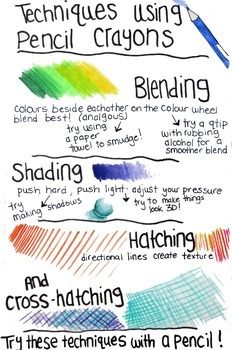 Techniques using
Pencil Crayons
Blending
colours beside eachother on the colour wheel
blend best! (analgous)
try using
a paper
towel to smudge!
try a qtip
with rubbing
alcohol for a
smoother blend
Shading
push hard, push light- adjust your pressure
try
making shadows
try to make things
look 3D!
Hatching
directional lines create texture
And
cross-hatching
Try these techniques with a pencil!